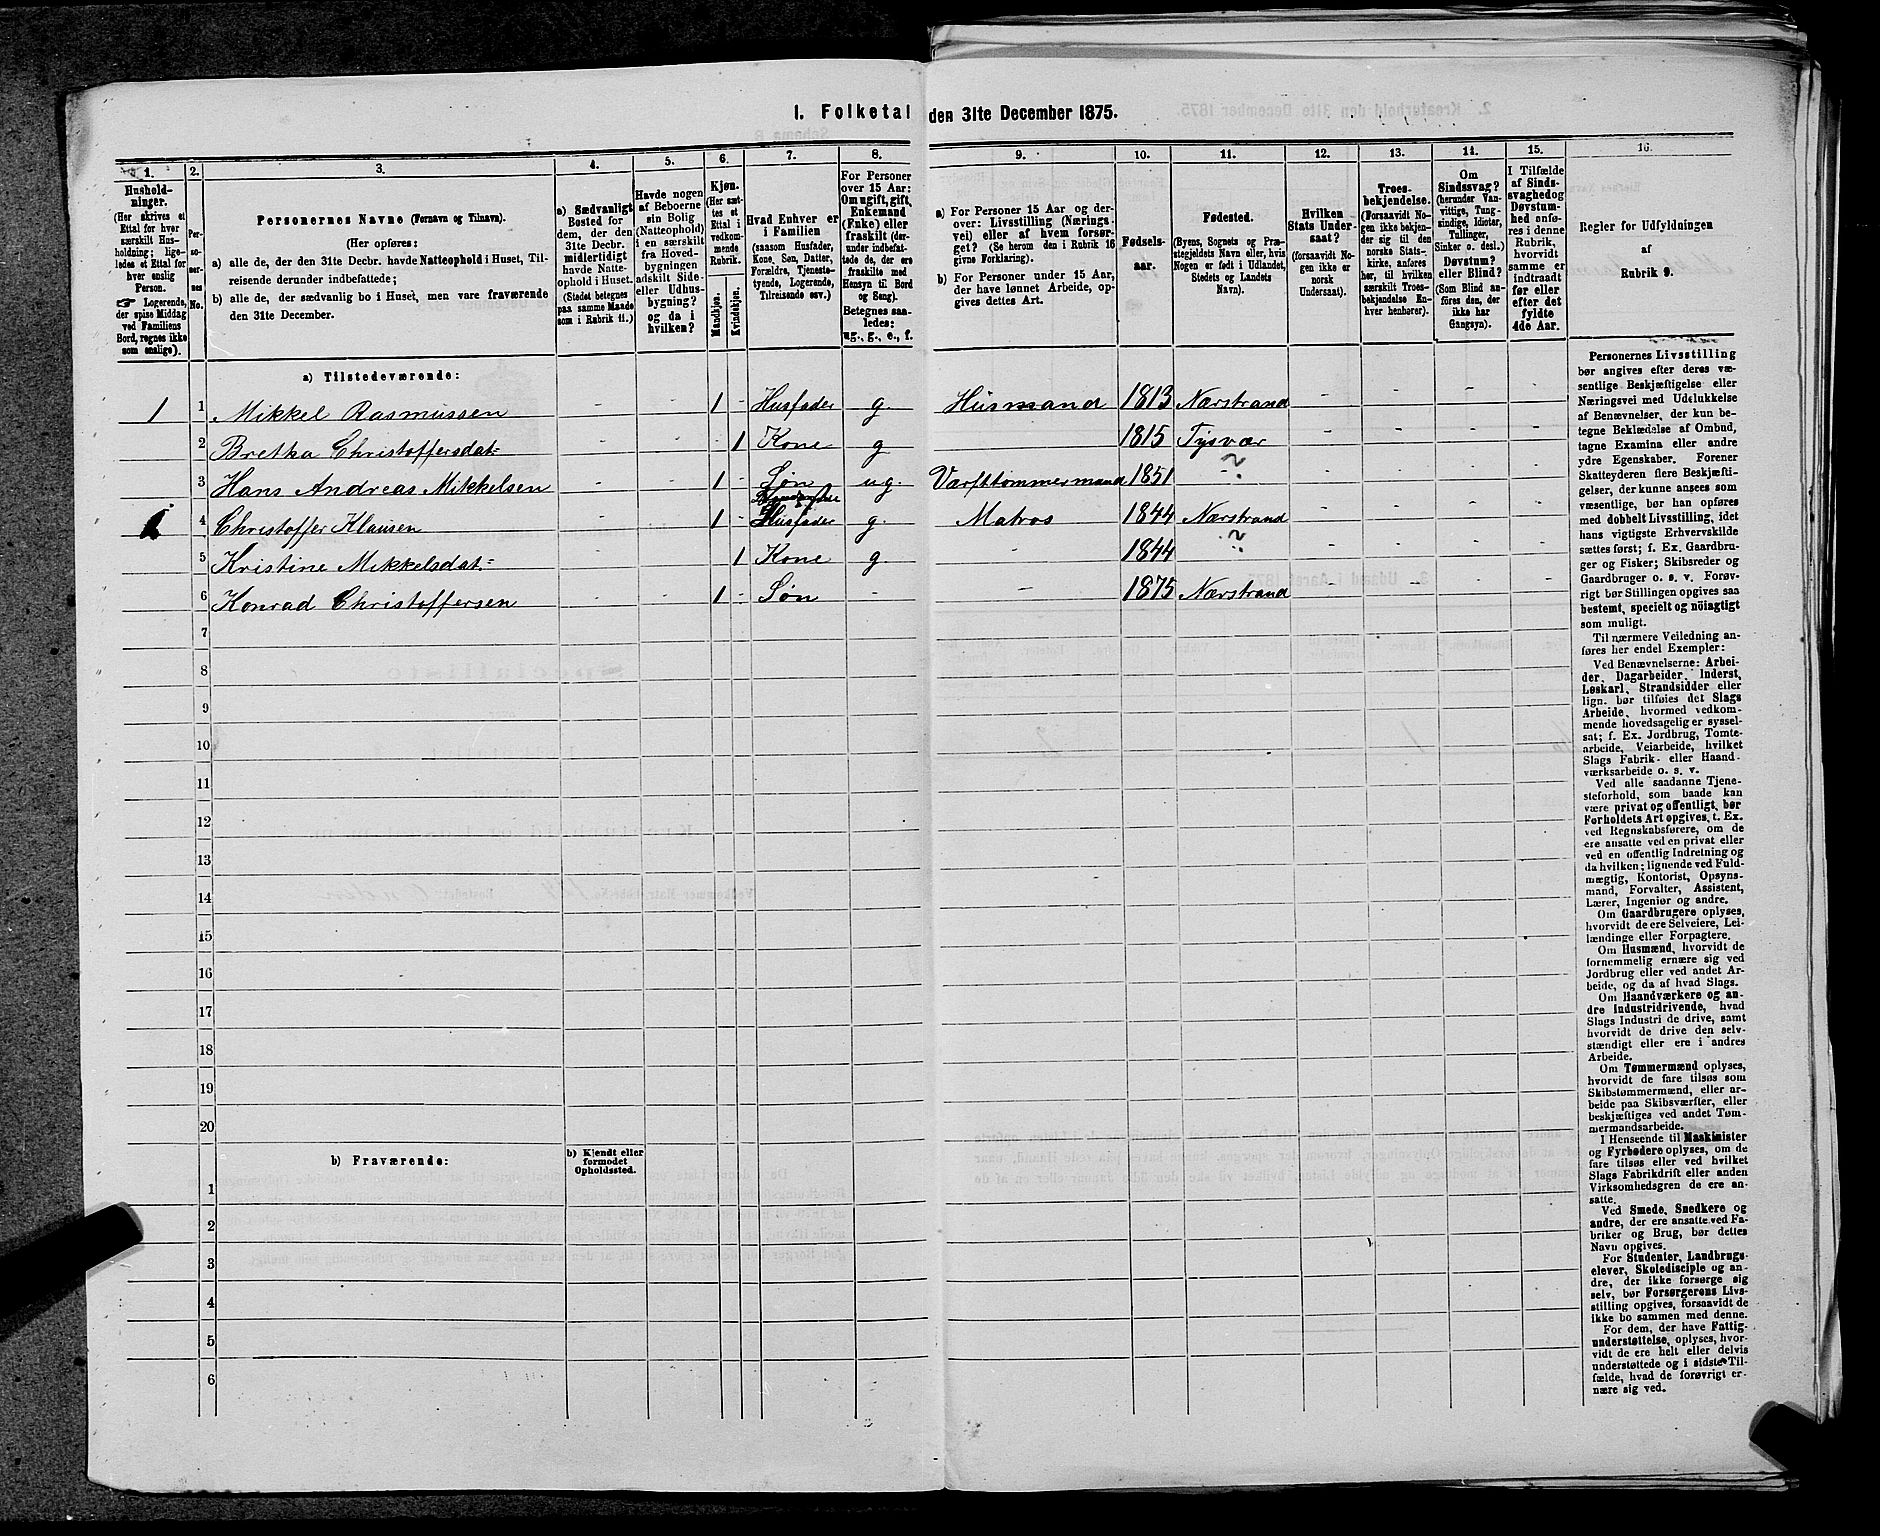 1. Folketal den 31te December 1875.
1.
Hushold-
ninger.
(Her skrives et
Ettal for hver
særskilt Hus-
holdning; lige-
ledes et Ettal for
hver enslig
Person.
Logerende,
der spise Middag
ved Familiens
Bord, regnes ikke
som enslige).
2.
Per-
so-
ner-
nes
No.
3.
Personernes Navne (Fornavn og Tilnavn).
(Her opføres:
a) alle de, der den 31te Decbr. havde Natteophold i Huset, Til-
reisende derunder indbefattede;
b) alle de, der sædvanlig bo i Huset, men vare fraværende
den 31te December.
4.
a) Sædvanligt
Bosted for
dem, der den
31te Decbr.
midlertidigt
havde Natte-
ophold i Huset.
(Stedet betegnes
paa samme Maade
som i Rubrik 11.)
5.
Havde nogen
af Beboerne
sin Bolig
(Natteophold)
i en særskilt
fra Hoved-
bygningen
adskilt Side-
eller Udhus-
bygning?
og da i
hvilken?
6.
Kjøn.
(Her sæt-
tes et
Ettal i
vedkom-
mende
Rubrik.
Mandkjøn.
Kvindekjøn.
7.
Hvad Enhver er
i Familien
(saasom Husfader,
Kone, Søn, Datter,
Forældre, Tjeneste-
tyende, Logerende,
Tilreisende osv.)
8.
For Personer
over 15 Aar:
Om ugift, gift,
Enkemand
(Enke) eller
fraskilt (der-
under indbefat-
tede de, der ere
fraskilte med
Hensyn til Bord
og Seng).
Betegnes saa-
ledes:
ug., g., e., f.
9.
a) For Personer 15 Aar og der-
over: Livsstilling (Nærings-
vei) eller af hvem forsør-
get? (Se herom den i Rubrik 16
givne Forklaring).
b) For Personer under 15 Aar,
der have lønnet Arbeide, op-
gives dettes Art.
10.
Fødsels-
aar.
11.
Fødested.
(Byens, Sognets og Præ-
stegjeldets Navn eller, hvis
Nogen er født i Udlandet,
Stedets og Landets
Navn).
12.
Hvilken
Stats Under-
saat?
(forsaavidt No-
gen ikke er
norsk
Undersaat).
13.
Troes-
bekjendelse.
(Forsaavidt No-
gen ikke bekjen-
der sig til den
norske Stats-
kirke, anføres
her, til hvilken
særskilt Troes-
bekjendelse En-
hver henhører).
14.
Om
Sindssvag?
(herunder Van-
vittige, Tung-
sindige, Idioter,
Tullinger,
Sinker o. desl.)
Døvstum?
eller Blind?
(Som Blind an-
føres den, der
ikke har
Gangsyn).
15.
I Tilfælde
af Sinds-
svaghed og
Døvstum-
hed anfø-
res i denne
Rubrik,
hvorvidt
samme er
indtraadt
før eller
efter det
fyldte
4de Aar.
16.
Regler for Udfyldningen
af
Rubrik 9.
a) Tilstedeværende:
1 1 Mikkel Rasmussen - - 1 - Husfader g. Husmand 1813 Nærstrand - - - -
2 Bretha Christoffersdat= - - 1 Kone g 1815 Tysvær - - - -
3 Hans Andreas Mikkelsen - - 1 - Søn ug. Værfttømmermand 1851 -"- ? - - - -
4 Christoffer Klausen - - 1 - Husfader g. Matros 1844 Nærstrand - - - -
5 Kristine Mikkelsdat= - - 1 Kone g. - 1844 -"- ? - - - -
6 Konrad Christoffersen - - 1 - Søn - - 1875 Nærstrand - - - -
7
8
9
10
11
12
13
14
15
16
17
18
19
20
b) Fraværende:
b) Kjendt eller
formodet
Opholdssted.
1
2
3
4
5
6
Personernes Livsstilling
bør angives efter deres væ-
sentlige Beskjæftigelse eller
Næringsvei med Udelukkelse
af Benævnelser, der kun be-
tegne Beklædelse af Ombud,
tagne Examina eller andre
ydre Egenskaber. Forener
Skatteyderen flere Beskjæfti-
gelser, der kunne ansees som
væsentlige, bør han opføres
med dobbelt Livsstilling, idet
hans vigtigste Erhvervskilde
sættes først; f. Ex. Gaardbru-
ger og Fisker; Skibsreder og
Gaardbruger o. s. v. Forøv-
rigt bør Stillingen opgives saa
bestemt, specielt og nöiagtigt
som muligt.
Til nærmere Veiledning an-
føres her endel Exempler:
Ved Benævnelserne: Arbei-
der, Dagarbeider, Inderst,
Løskarl, Strandsidder eller
lign. bør tilføies det Slags
Arbeide, hvormed vedkom-
mende hovedsagelig er syssel-
sat; f. Ex. Jordbrug, Tomte-
arbeide, Veiarbeide, hvilket
Slags Fabrik- eller Haand-
værksarbeide o. s. v.
Ved alle saadanne Tjene-
steforhold, som baade kan
være privat og offentligt, bør
Forholdets Art opgives, t. Ex.
ved Regnskabsførere, om de
ere ansatte ved en privat eller
ved en offentlig Indretning og
da hvilken; lignende ved Fuld-
mægtig, Kontorist, Opsyns-
mand, Forvalter, Assistent,
Lærer, Ingeniør og andre.
Om Gaardbrugere oplyses,
hvorvidt de ere Selveiere, Lei-
lændinge eller Forpagtere.
Om Husmænd, hvorvidt de
fornemmelig ernære sig ved
Jordbrug eller ved andet Ar-
beide, og da af hvad Slags.
Om Haandværkere og an-
dre Industridrivende, hvad
Slags Industri de drive, samt
hvorvidt de drive den selv-
stændigt eller ere i andres
Arbeide.
Om Tømmermænd oplyses,
hvorvidt de fare tilsøs som
Skibstømmermænd, eller ar-
beide paa Skibsværfter, eller
beskjæftiges ved andet Tøm-
mermandsarbeide.
I Henseende til Maskinister
og Fyrbødere oplyses, om de
fare tilsøs eller ved hvilket
Slags Fabrikdrift eller anden
Virksomhedsgren de ere an-
satte.
Ved Smede, Snedkere og
andre, der ere ansatte ved Fa-
briker og Brug, bør dettes
Navn opgives.
For Studenter, Landbrugs-
elever, Skoledisciple og an-
dre, der ikke forsørge sig
selv, bør Forsørgerens Livs-
stilling opgives, forsaavidt de
ikke bo sammen med denne.
For dem, der have Fattig-
understøttelse, oplyses, hvor-
vidt de ere helt eller delvis
understøttede og i sidste Til-
fælde, hvad de forøvrigt er-
nære sig ved.